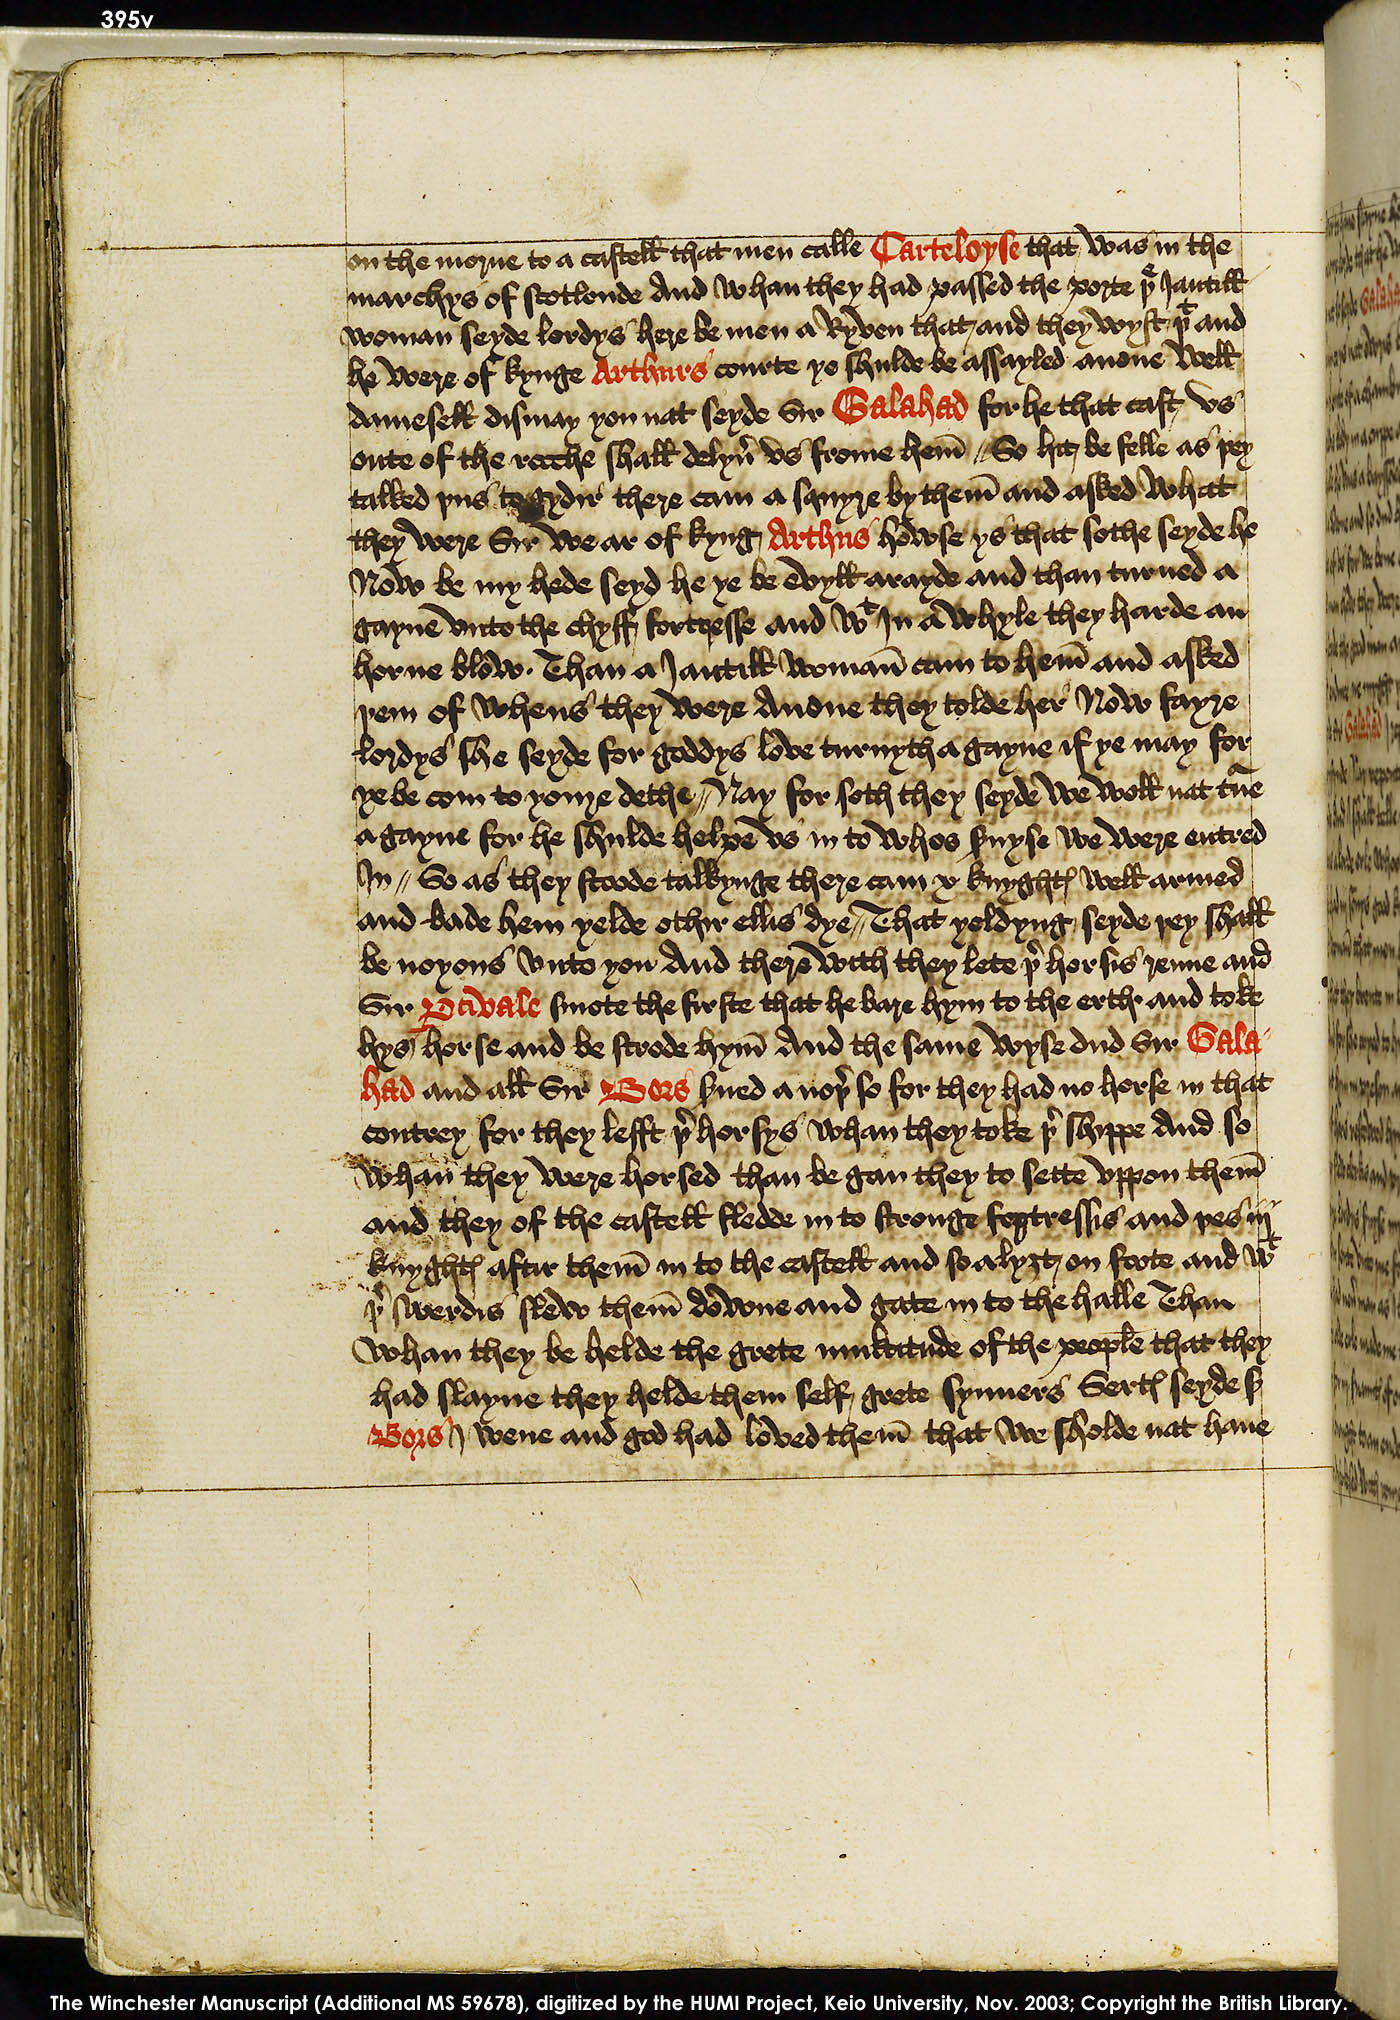 395v
on the morne to a castell that men calle Carteloyse that was in the
marchys of scotlonde And whan they had passed the porte þe Jantill
woman seyde lordys here be men a Ryven that and they wyst þt and
he were of kynge Arthurs courte ye shulde be assayled anone Well
damesell dismay you nat seyde Sir Galahad for he that cast vs
oute of the rocche shall delyu̾ vs frome hem̄ // So hit be felle as þey
talked þus to gydir there cam a squyre by them̄ and asked what
they were Sir we ar of kyng Arthus howse ys that sothe seyde he
Now be my hede seyd he ye be evyll arayde and than turned a
gayne vnto the chyff fortresse and wt In a whyle they harde an
horne blow . Than a Jantill woman̄ cam to hem̄ and asked
þem of whens they were Anone they tolde her Now fayre
lordys she seyde for goddys love turnyth a gayne if ye may for
ye be com to youre dethe // Nay for soth they seyde we woll nat tn̄e
a gayne for he shulde helpe vs in to whos s̾uyse we were entred
In // So as they stoode talkynge there cam x knyghtꝭ well armed
and bade hem yelde othir ellis dye // That yoldyng seyde þey shall
be noyous vnto you And there with they lete þr horsis renne and
Sir P̱civale smote the firste that he bare hym to the erth and toke
hys horse and be strode hym̄ And the same wyse dud Sir Gala
had and all Sir Bors s̾ued a noþr so for they had no horse in that
contrey for they lefft þr horsys whan they toke þr shyppe And so
whan they were horsed than be gan they to sette vppon them̄
and they of the castell fledde in to stronge fortressis and þes iij
knyghtꝭ aftir them̄ in to the castell and so alyȝt on foote and wt
þr swerdis slew them̄ downe and gate in to the halle Than
whan they be helde the grete multitude of the people that they
had slayne they helde them self grete synners Sertꝭ seyde sꝭ
Bors I wene and god had loved them̄ that we sholde nat haue
The Winchester Manuscript (Additional MS 59678), digitized by the HUMI Project, Keio University, Nov. 2003; Copyright the British Library.